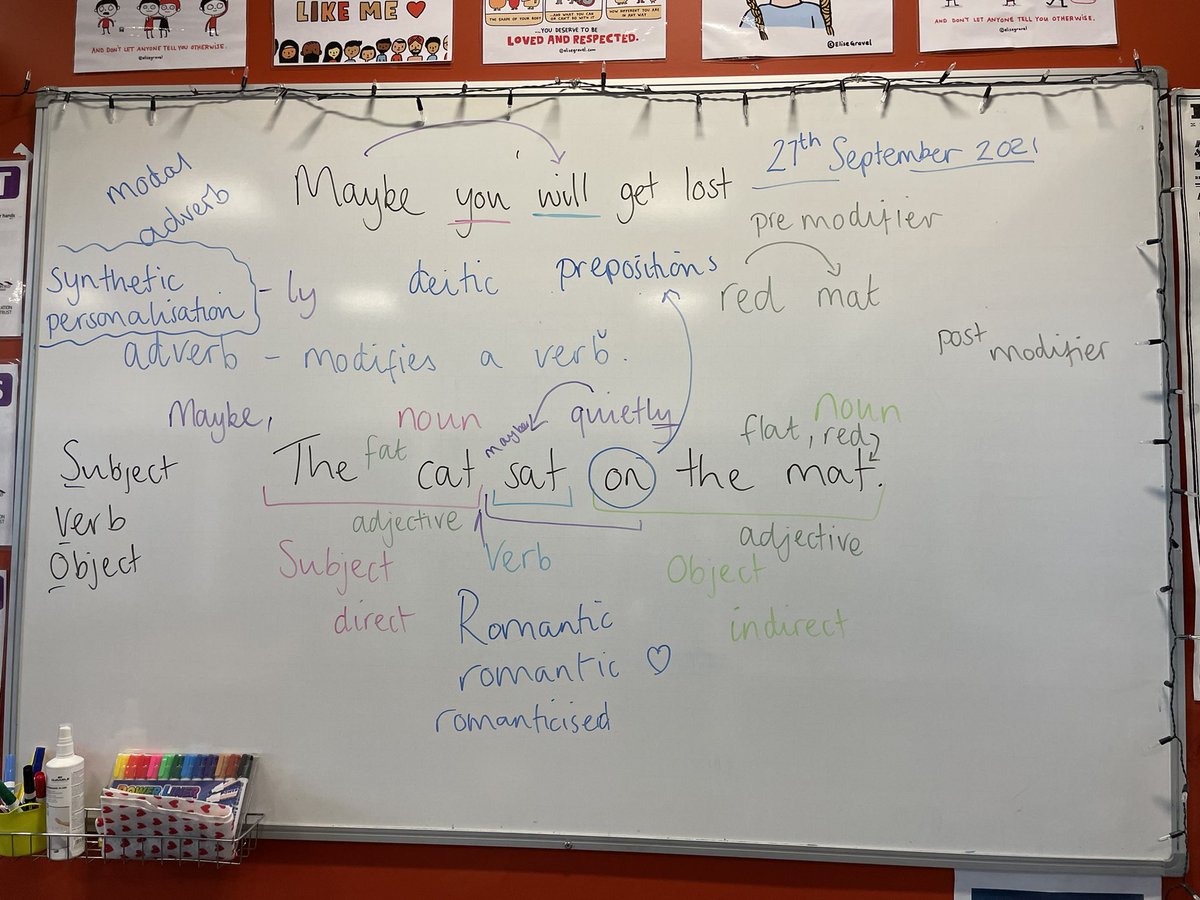 AND DON'T LET ANYONE TELL YOU OTHERWISE.
@elisegravel
LIKE ME
THE SHAPE OF YOUR BODY
AND WHAT YOU CAN OR CAN'T DO WITH IT
HOW DIFFERENT YOU ARE IN ANY WAY
...YOU DESERVE TO BE
LOVED AND RESPECTED.
@elisegravel.com
@EliseGravel
AND DON'T LET ANYONE TELL YOU OTHERWISE.
@elisegravel
27th September 2021
modal
adverb
Maybe you will get lost
pre modifier
synthetic
personalisation
- ly
deitic
prepositions
red mat
post modifier
adverb - modifies a verb.
Maybe,
noun
quietly
noun
maybe
flat, red
Subject
Verb
Object
The fat cat sat on the mat.
adjective
adjective
Subject
Verb
Object
direct
indirect
Romantic
romantic ♡
romanticised
POWER LINER